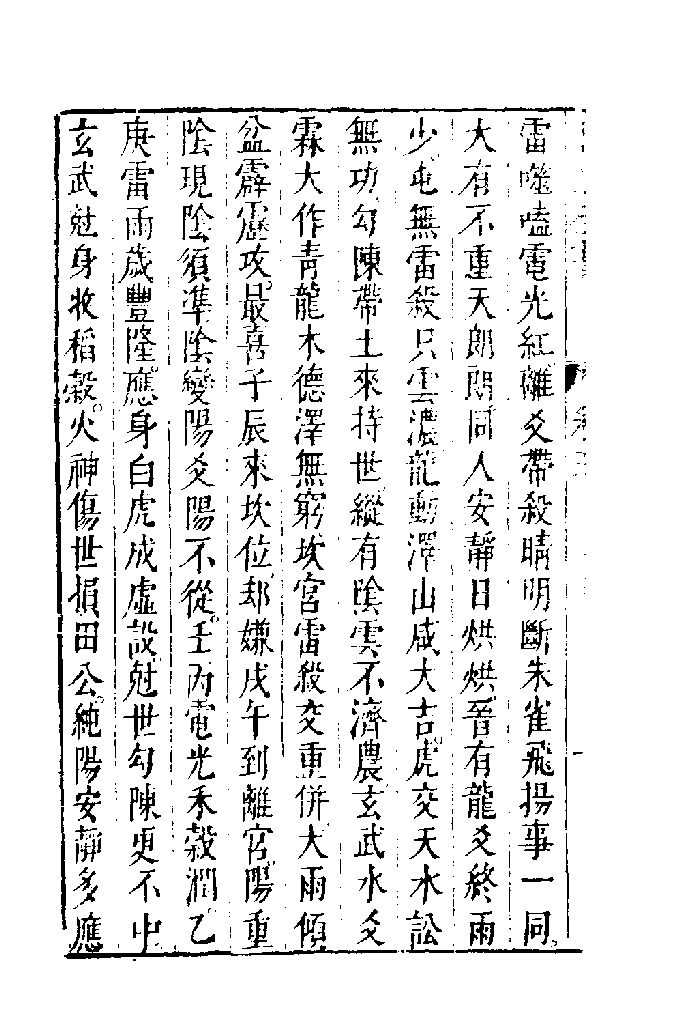 雷噬嗑電光紅離爻帶殺晴明斷朱雀飛揚事一同
大有不重天朗朗同人安靜日烘烘晉有龍爻終雨
少屯無雷殺只雲濃龍動澤山咸大吉虎交天水訟
無功勾陳帶土來持世縱有陰雲不濟農玄武水爻
霖大作青龍木德澤無窮坎宮雷殺交重併大雨傾
盆霹靂攻最喜子辰來坎位却嫌戌午到離宮陽重
陰現陰須準陰變陽爻陽不從壬丙電光禾穀潤乙
庚雷雨歲豐隆應身白虎成虛設尅世勾陳更不中
玄武尅身收稻穀火神傷世損田公純陽安靜多應